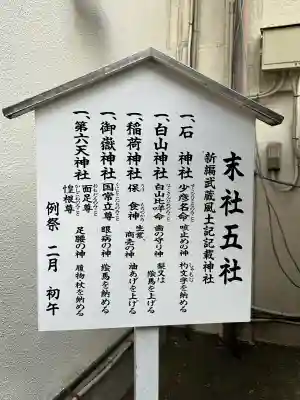 末社五社
新編武蔵風土記記載神社
一、石神社 少彦名命 咳止めの神 杓文字を納める
一、白山神社 白山比咩命 歯の守り神 梨又は絵馬を上げる
一、稲荷神社 保食神 生業、商売の神 油あげを上げる
一、御嶽神社 国常立尊 眼病の神 絵馬を納める
一、第六天神社 面足尊 惶根尊 足腰の神 履物杖を納める
例祭 二月 初午